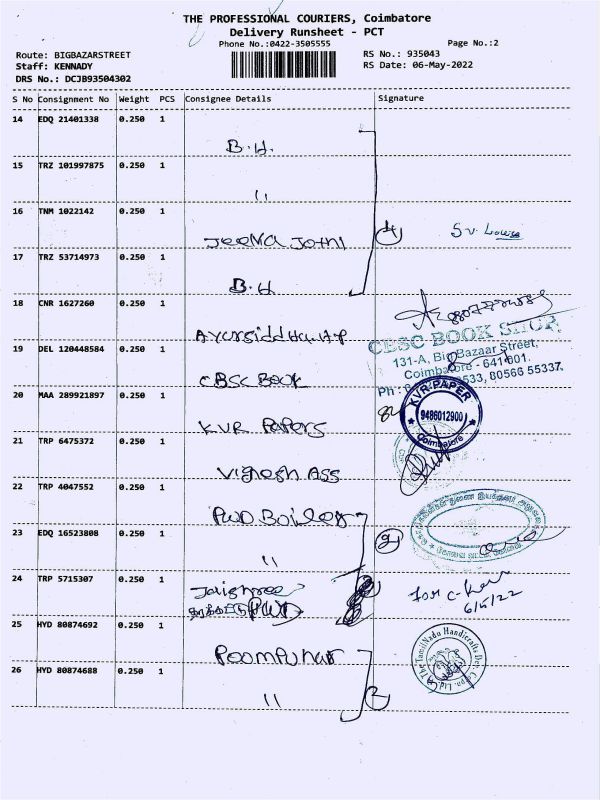 THE PROFESSIONAL COURIERS, Coimbatore
Delivery Runsheet - PCT
Phone No.:0422-3505555
Page No.:2
Route: BIGBAZARSTREET
Staff: KENNADY
DRS No.: DCJB93504302
RS No.: 935043
RS Date: 06-May-2022
S No Consignment No Weight PCS Consignee Details Signature
14 EDQ 21401338 0.250 1
B.H.
15 TRZ 101997875 0.250 1
"
16 TNM 1022142 0.250 1
Jeeva Jothi
4
17 TRZ 53714973 0.250 1
B.H
18 CNR 1627260 0.250 1
19 DEL 120448584 0.250 1
CBSC Book
CBSC BOOK SHOP
131-A, Big Bazaar Street,
Coimbatore - 641 001.
80566 55337.
20 MAA 289921897 0.250 1
KVR Papers
KVR-PAPER
9486012900
Coimbatore
21 TRP 6475372 0.250 1
Vignesh Ass
22 TRP 4047552 0.250 1
PWD Boiler
23 EDQ 16523808 0.250 1
"
2
24 TRP 5715307 0.250 1
Jaishree
6/5/22
25 HYD 80874692 0.250 1
Poompuhar
The TamilNadu Handicrafts Dev. Corpn. Ltd.
26 HYD 80874688 0.250 1
"
2